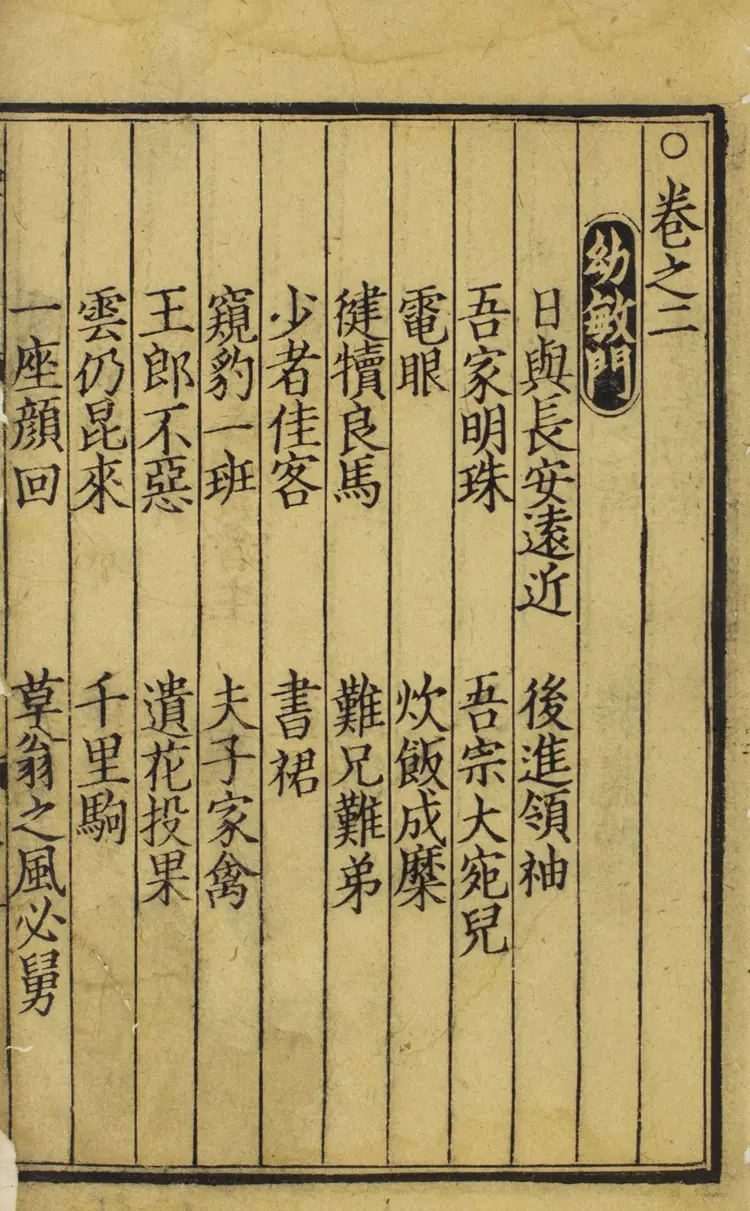 ○卷之二
幼敏門
日與長安遠近　後進領袖
吾家明珠　吾宗大宛兒
電眼　炊飯成糜
健犢良馬　難兄難弟
少者佳客　書裙
窺豹一班　夫子家禽
王郎不惡　遺花投果
雲仍昆來　千里駒
一座顔回　草翁之風必舅